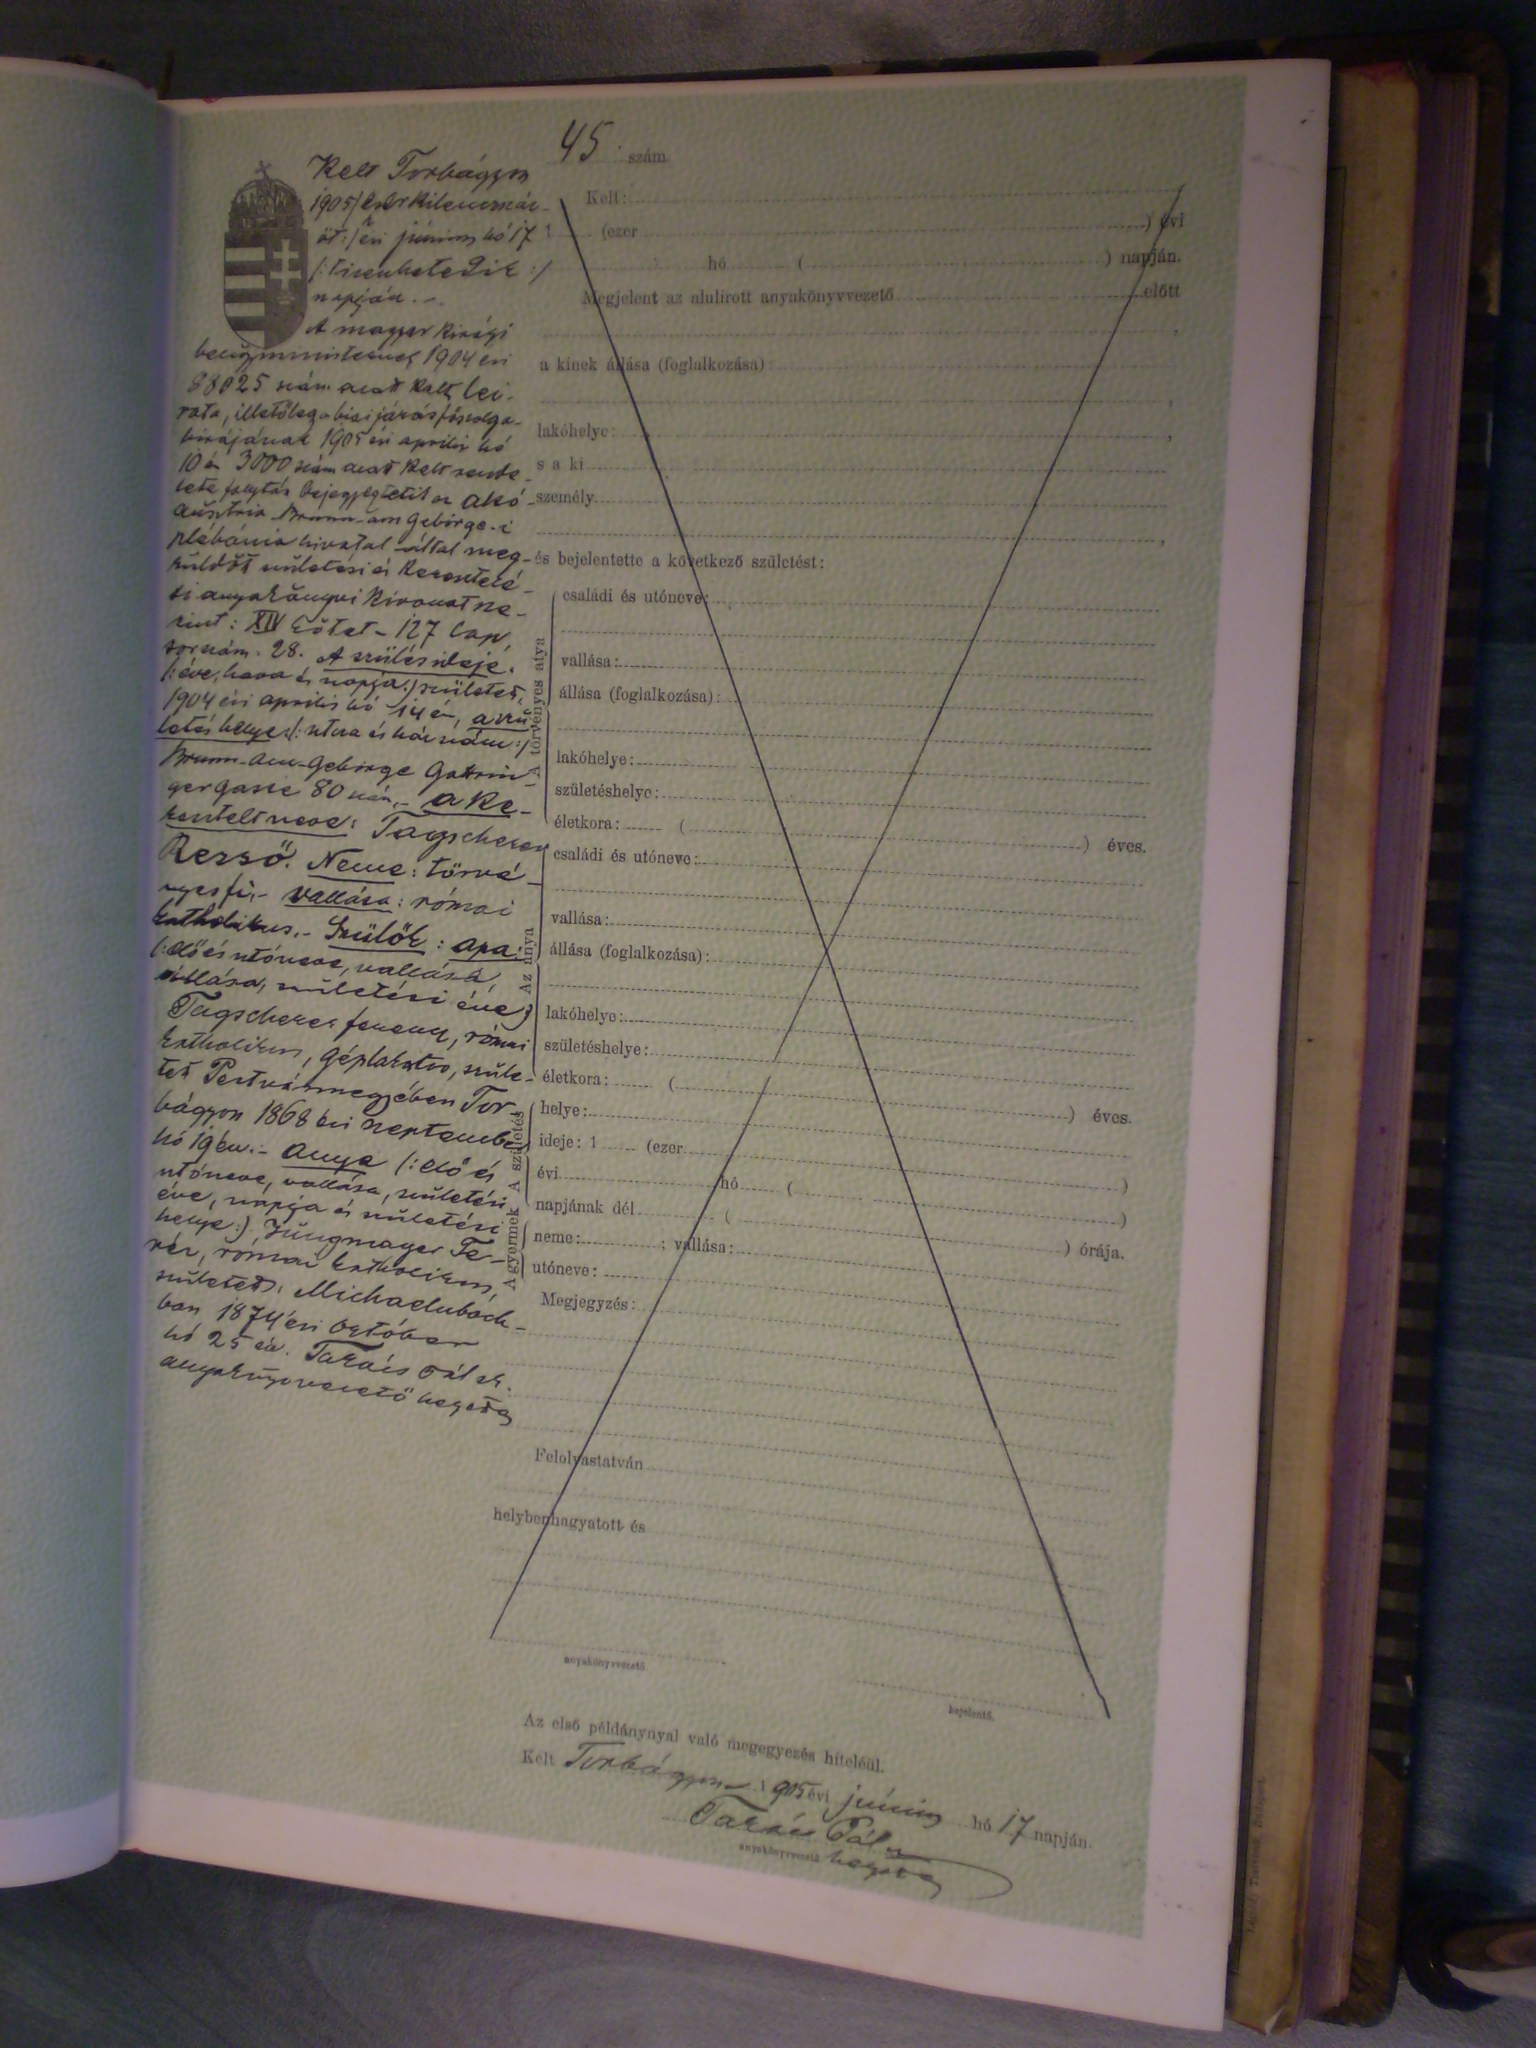 45. szám.
Kelt Torbágyon
1905/ezerkilenczszáz-
öt:/ évi június hó 17
/:tizenhetedik:/
napján.-
A magyar királyi
belügyministernek 1904 évi
88025 szám alatt kelt lei-
rata, illetőleg a biai járás főszolga-
birájának 1905 évi április hó
10 én 3000 szám alatt kelt rende-
lete folytán bejegyeztetik az alsó
ausztria Brunn-am Gebirge-i
plébánia hivatal által meg-
küldött születési és keresztelé-
si anyakönyvi kivonat sze-
rint: XIV kötet - 127 lap
sorszám. 28. A szülés ideje.
/:éve, hava és napja:/ született,
1904 évi április hó 14 én, a szü
letés helye:/: utca és ház szám:/
Brunn-am-Gebirge Gattrin
gergasse 80 szám,- a ke-
resztelt neve: Tagscherer
Rezső. Neme: törvé-
nyes fi,- vallása: római
katholikus.- Szülők: apa:
(:elő és utóneve, vallása,
állása, születési éve)
Tagscherer ferencz, római
katholikus, géplakatos, szüle-
tett Pestvármegyében Tor-
bágyon 1868 évi september
hó 19 én.- Anya (:elő és
utóneve, vallása, születési
éve, napja és születési
helye:) Jungmayer Te-
réz, római katholikus,
született: Michaelnbach-
ban 1874 évi október
hó 25 én. Takács Pál sk.
anyakönyvvezető helyettes
Kelt:
1 (ezer ) évi
hó ( ) napján.
Megjelent az alulirott anyakönyvvezető előtt
,
a kinek állása (foglalkozása):
,
lakóhelye: ,
s a ki
személy
,
és bejelentette a következő születést:
A törvényes atya
családi és utóneve:
vallása:
állása (foglalkozása):
lakóhelye:
születéshelye:
életkora: ( ) éves.
Az anya
családi és utóneve:
vallása:
állása (foglalkozása):
lakóhelye:
születéshelye:
életkora: ( ) éves.
A gyermek A születés
helye:
ideje: 1 (ezer
évi hó ( )
napjának dél ( )
neme: ; vallása: ) órája.
utóneve:
Megjegyzés:
Felolvastatván
helybenhagyatott és
anyakönyvvezető.
bejelentő.
Az első példánynyal való megegyezés hiteléül.
Kelt Torbágyon 1905 évi június hó 17 napján.
Takács Pál
anyakönyvvezető helyettes